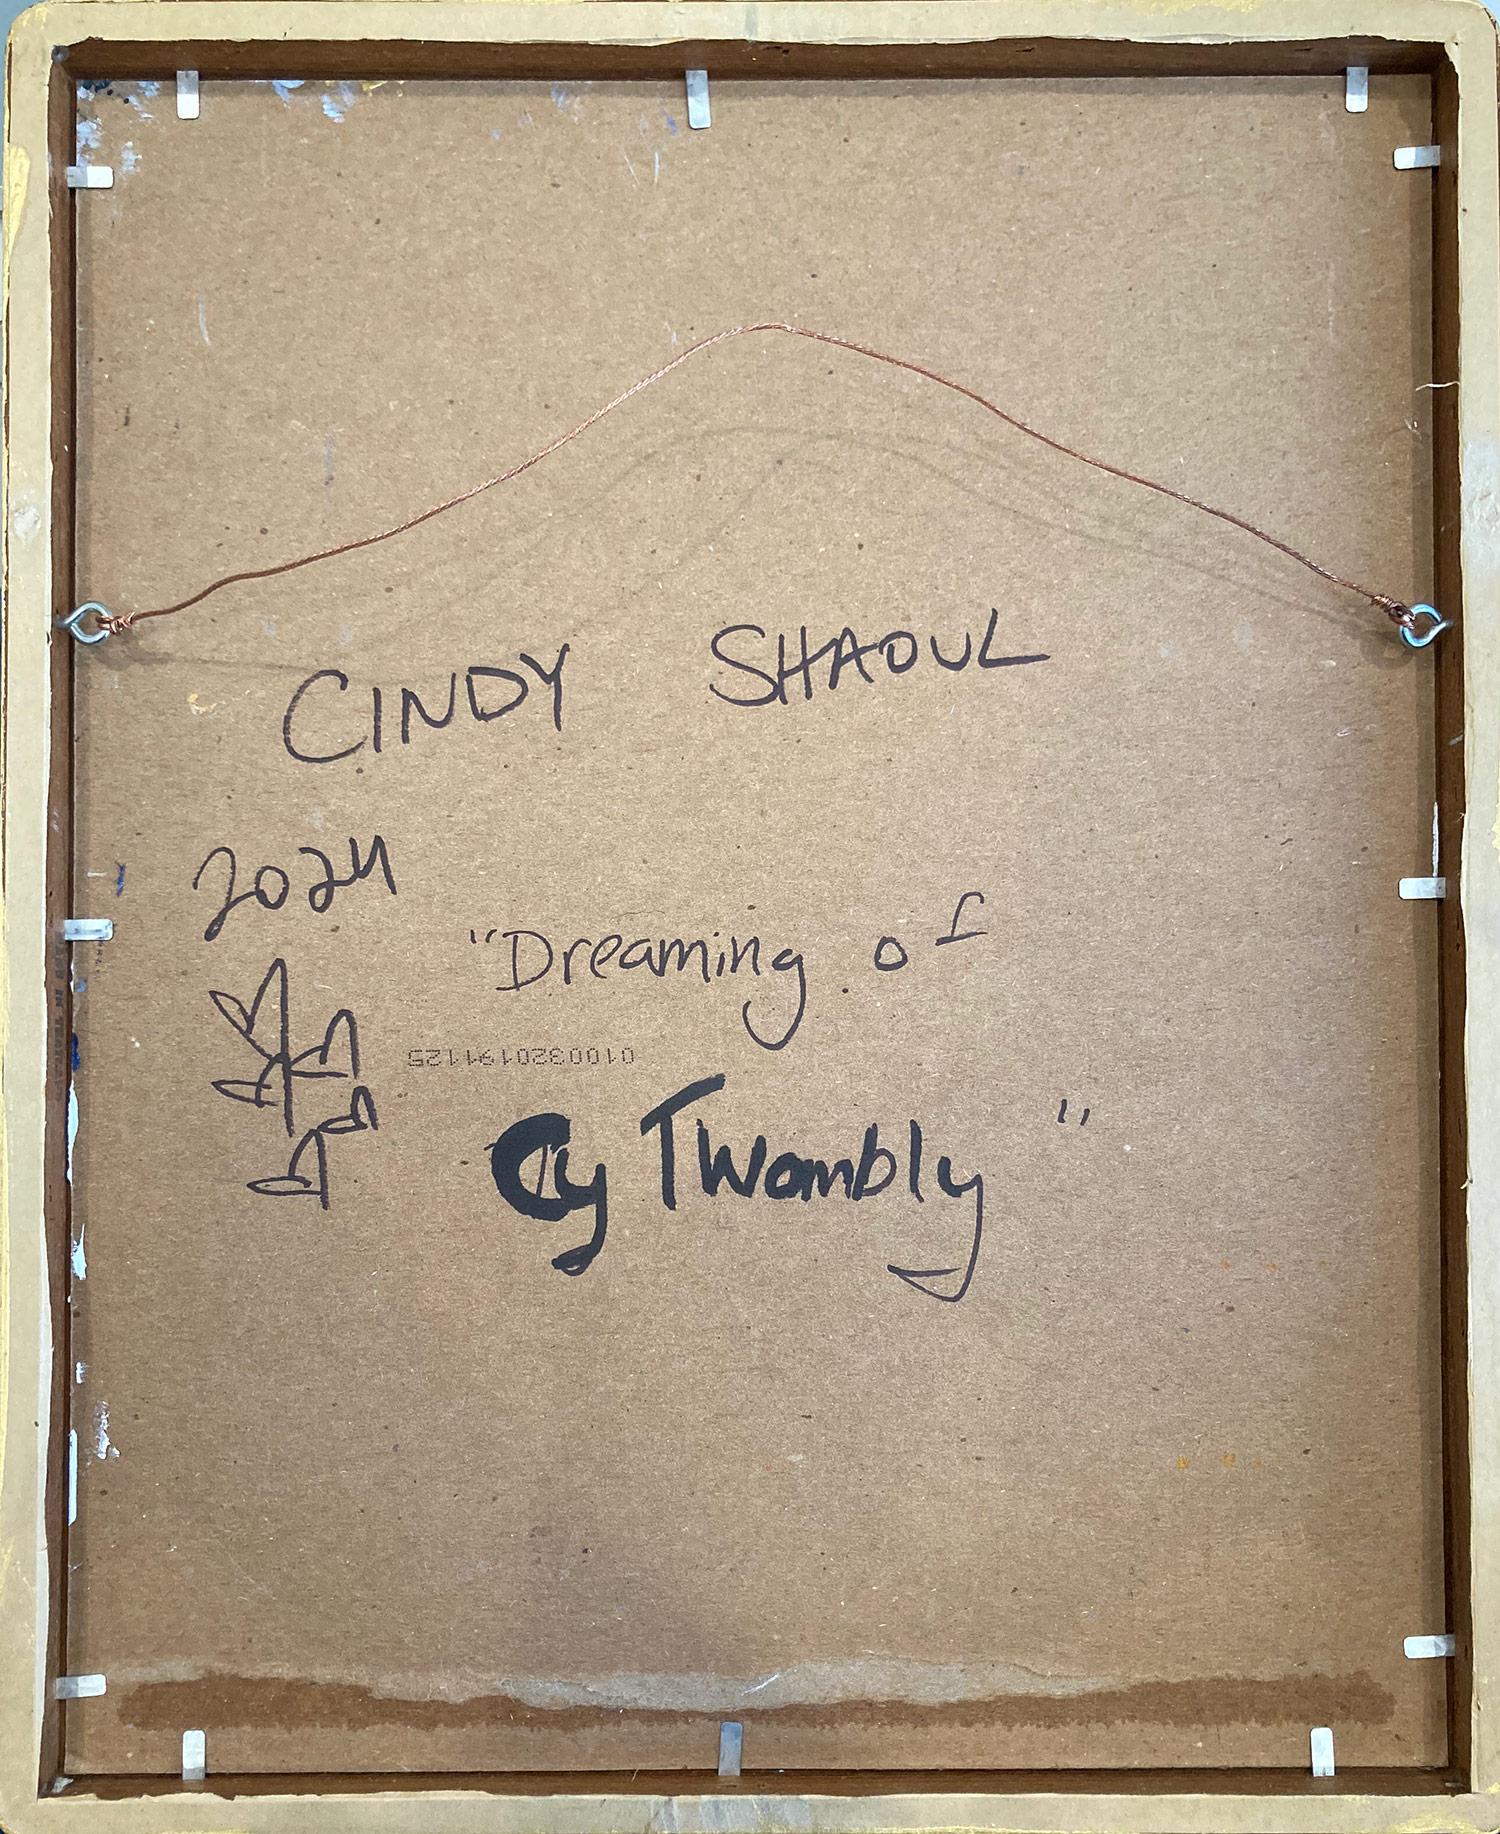 CINDY SHAOUL
2024
"Dreaming of
0100320191125
Cy Twombly"